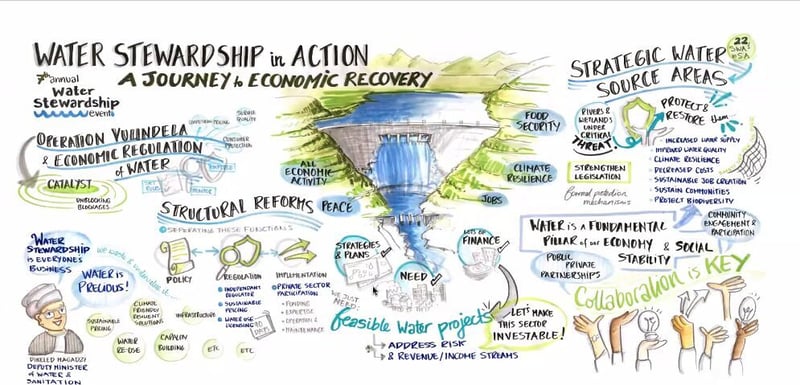 WATER STEWARDSHIP in ACTION
A JOURNEY to ECONOMIC RECOVERY
7th annual
Water
Stewardship
event
OPERATION VULINDELA
& ECONOMIC REGULATION
of WATER
SERVICE
QUALITY
CONSUMER
PROTECTION
CATALYST
UNBLOCKING
BLOCKAGES
ALL
ECONOMIC
ACTIVITY
PEACE
FOOD
SECURITY
CLIMATE
RESILIENCE
JOBS
STRUCTURAL REFORMS
SEPARATING THESE FUNCTIONS
POLICY
REGULATION
INDEPENDANT
REGULATOR
SUSTAINABLE
PRICING
WATER USE
LICENSING
DAYS
IMPLEMENTATION
PRIVATE SECTOR
PARTICIPATION
- FUNDING
- EXPERTISE
- OPERATION &
MAINTENANCE
STRATEGIES
& PLANS
LOTS OF
FINANCE
NEED
WE JUST
NEED:
feasible water projects
ADDRESS RISK
& REVENUE/INCOME STREAMS
LET'S MAKE
THIS SECTOR
INVESTABLE!
WATER
STEWARDSHIP
IS EVERYONE'S
BUSINESS
WATER IS
PRECIOUS!
SUSTAINABLE
PRICING
CLIMATE
FRIENDLY
RESILIENT
SOLUTIONS
INFRASTRUCTURE
WATER
RE-USE
CAPACITY
BUILDING
ETC
ETC
DIKELED MAGADZI
DEPUTY MINISTER
of WATER &
SANITATION
STRATEGIC WATER
SOURCE AREAS
22
SWSA
RSA
RIVERS &
WETLANDS
UNDER
CRITICAL
THREAT
PROTECT &
RESTORE them
STRENGTHEN
LEGISLATION
formal protection
mechanisms
• INCREASED WATER SUPPLY
• IMPROVED WATER QUALITY
• CLIMATE RESILIENCE
• DECREASED COSTS
• SUSTAINABLE JOB CREATION
• SUSTAIN COMMUNITIES
• PROTECT BIODIVERSITY
COMMUNITY
ENGAGEMENT &
PARTICIPATION
WATER is A FUNDAMENTAL
PILLAR of our ECONOMY & SOCIAL
STABILITY
PUBLIC
PRIVATE
PARTNERSHIPS
Collaboration is KEY